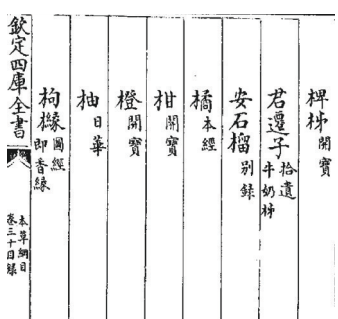 椑柹開寶
君遷子拾遺牛奶柹
安石榴别録
橘本經
柑開寶
橙開寶
柚日華
枸櫞圖經即香緣
欽定四庫全書
本草綱目
卷三十目録